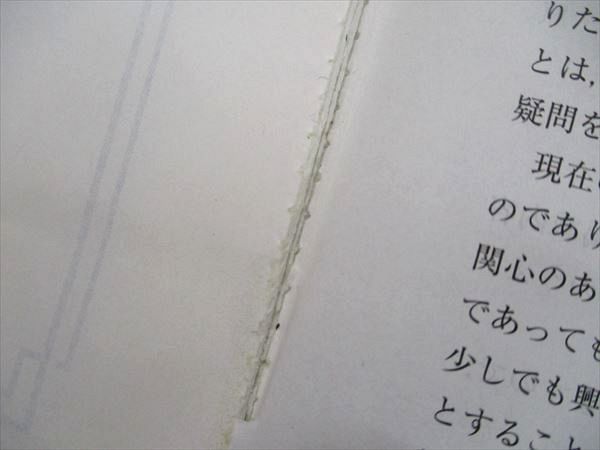 りた
とは,
疑問を
現在
のであり
関心のあ
であっても
少しでも興
とすること